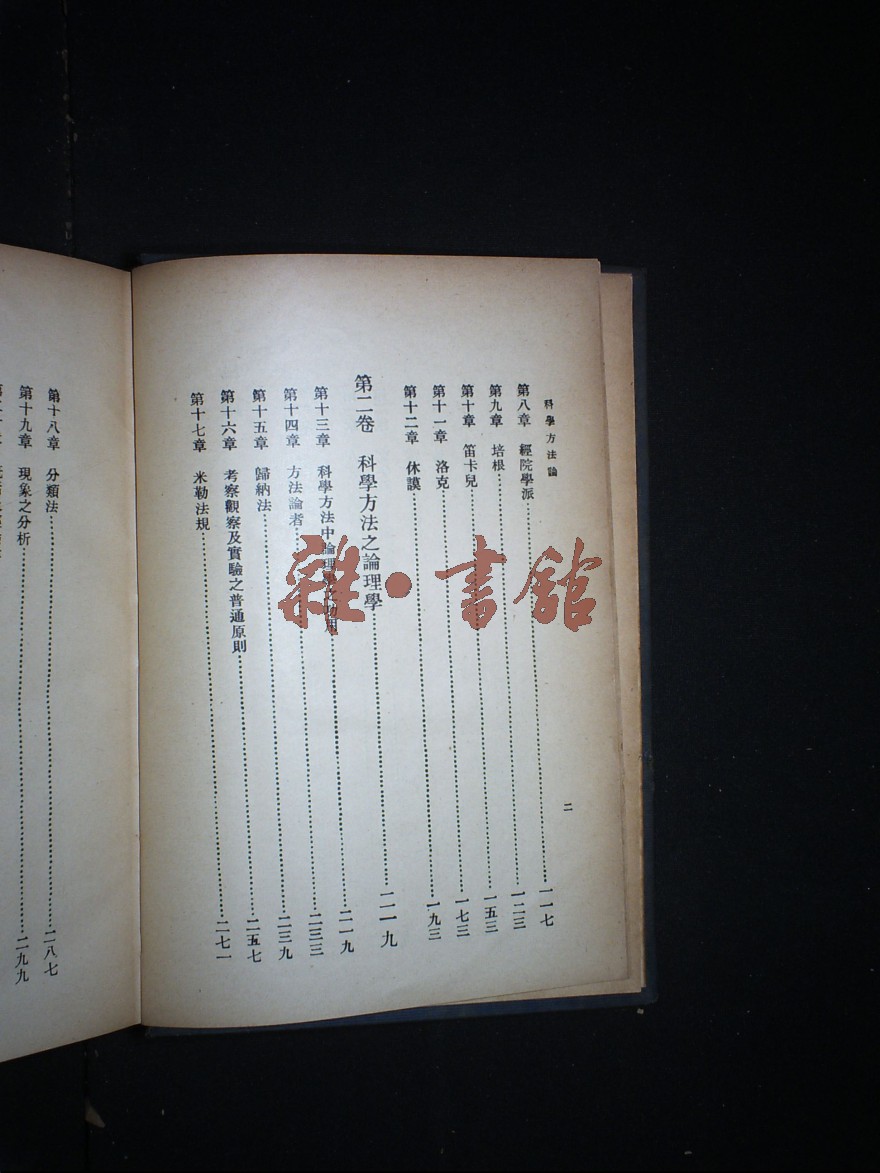 科學方法論
二
第八章 經院學派……一一七
第九章 培根……一二三
第十章 笛卡兒……一五三
第十一章 洛克……一七三
第十二章 休謨……一九三
第二卷 科學方法之論理學……二一九
第十三章 科學方法中論理用……二一九
第十四章 方法論者……二三三
第十五章 歸納法……二三九
第十六章 考察觀察及實驗之普通原則……二五七
第十七章 米勒法規……二七一
第十八章 分類法……二八七
第十九章 現象之分析……二九九
雜·書館